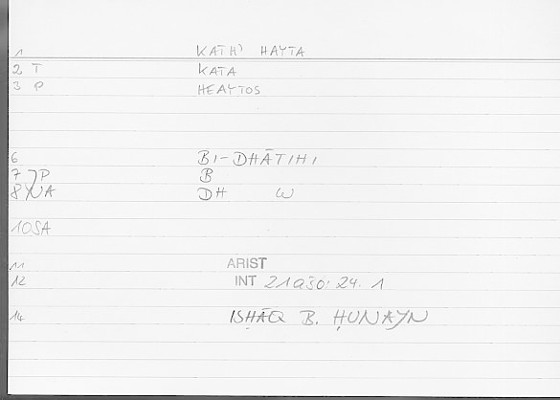 1 KATH' HAYTA
2 T KATA
3 P HEAYTOS
6 BI-DHĀTIHI
7 JP B
8 XNA DH W
10SA
11 ARIST
12 INT 21a30: 24. 1
14 ISḤĀQ B. ḤUNAYN